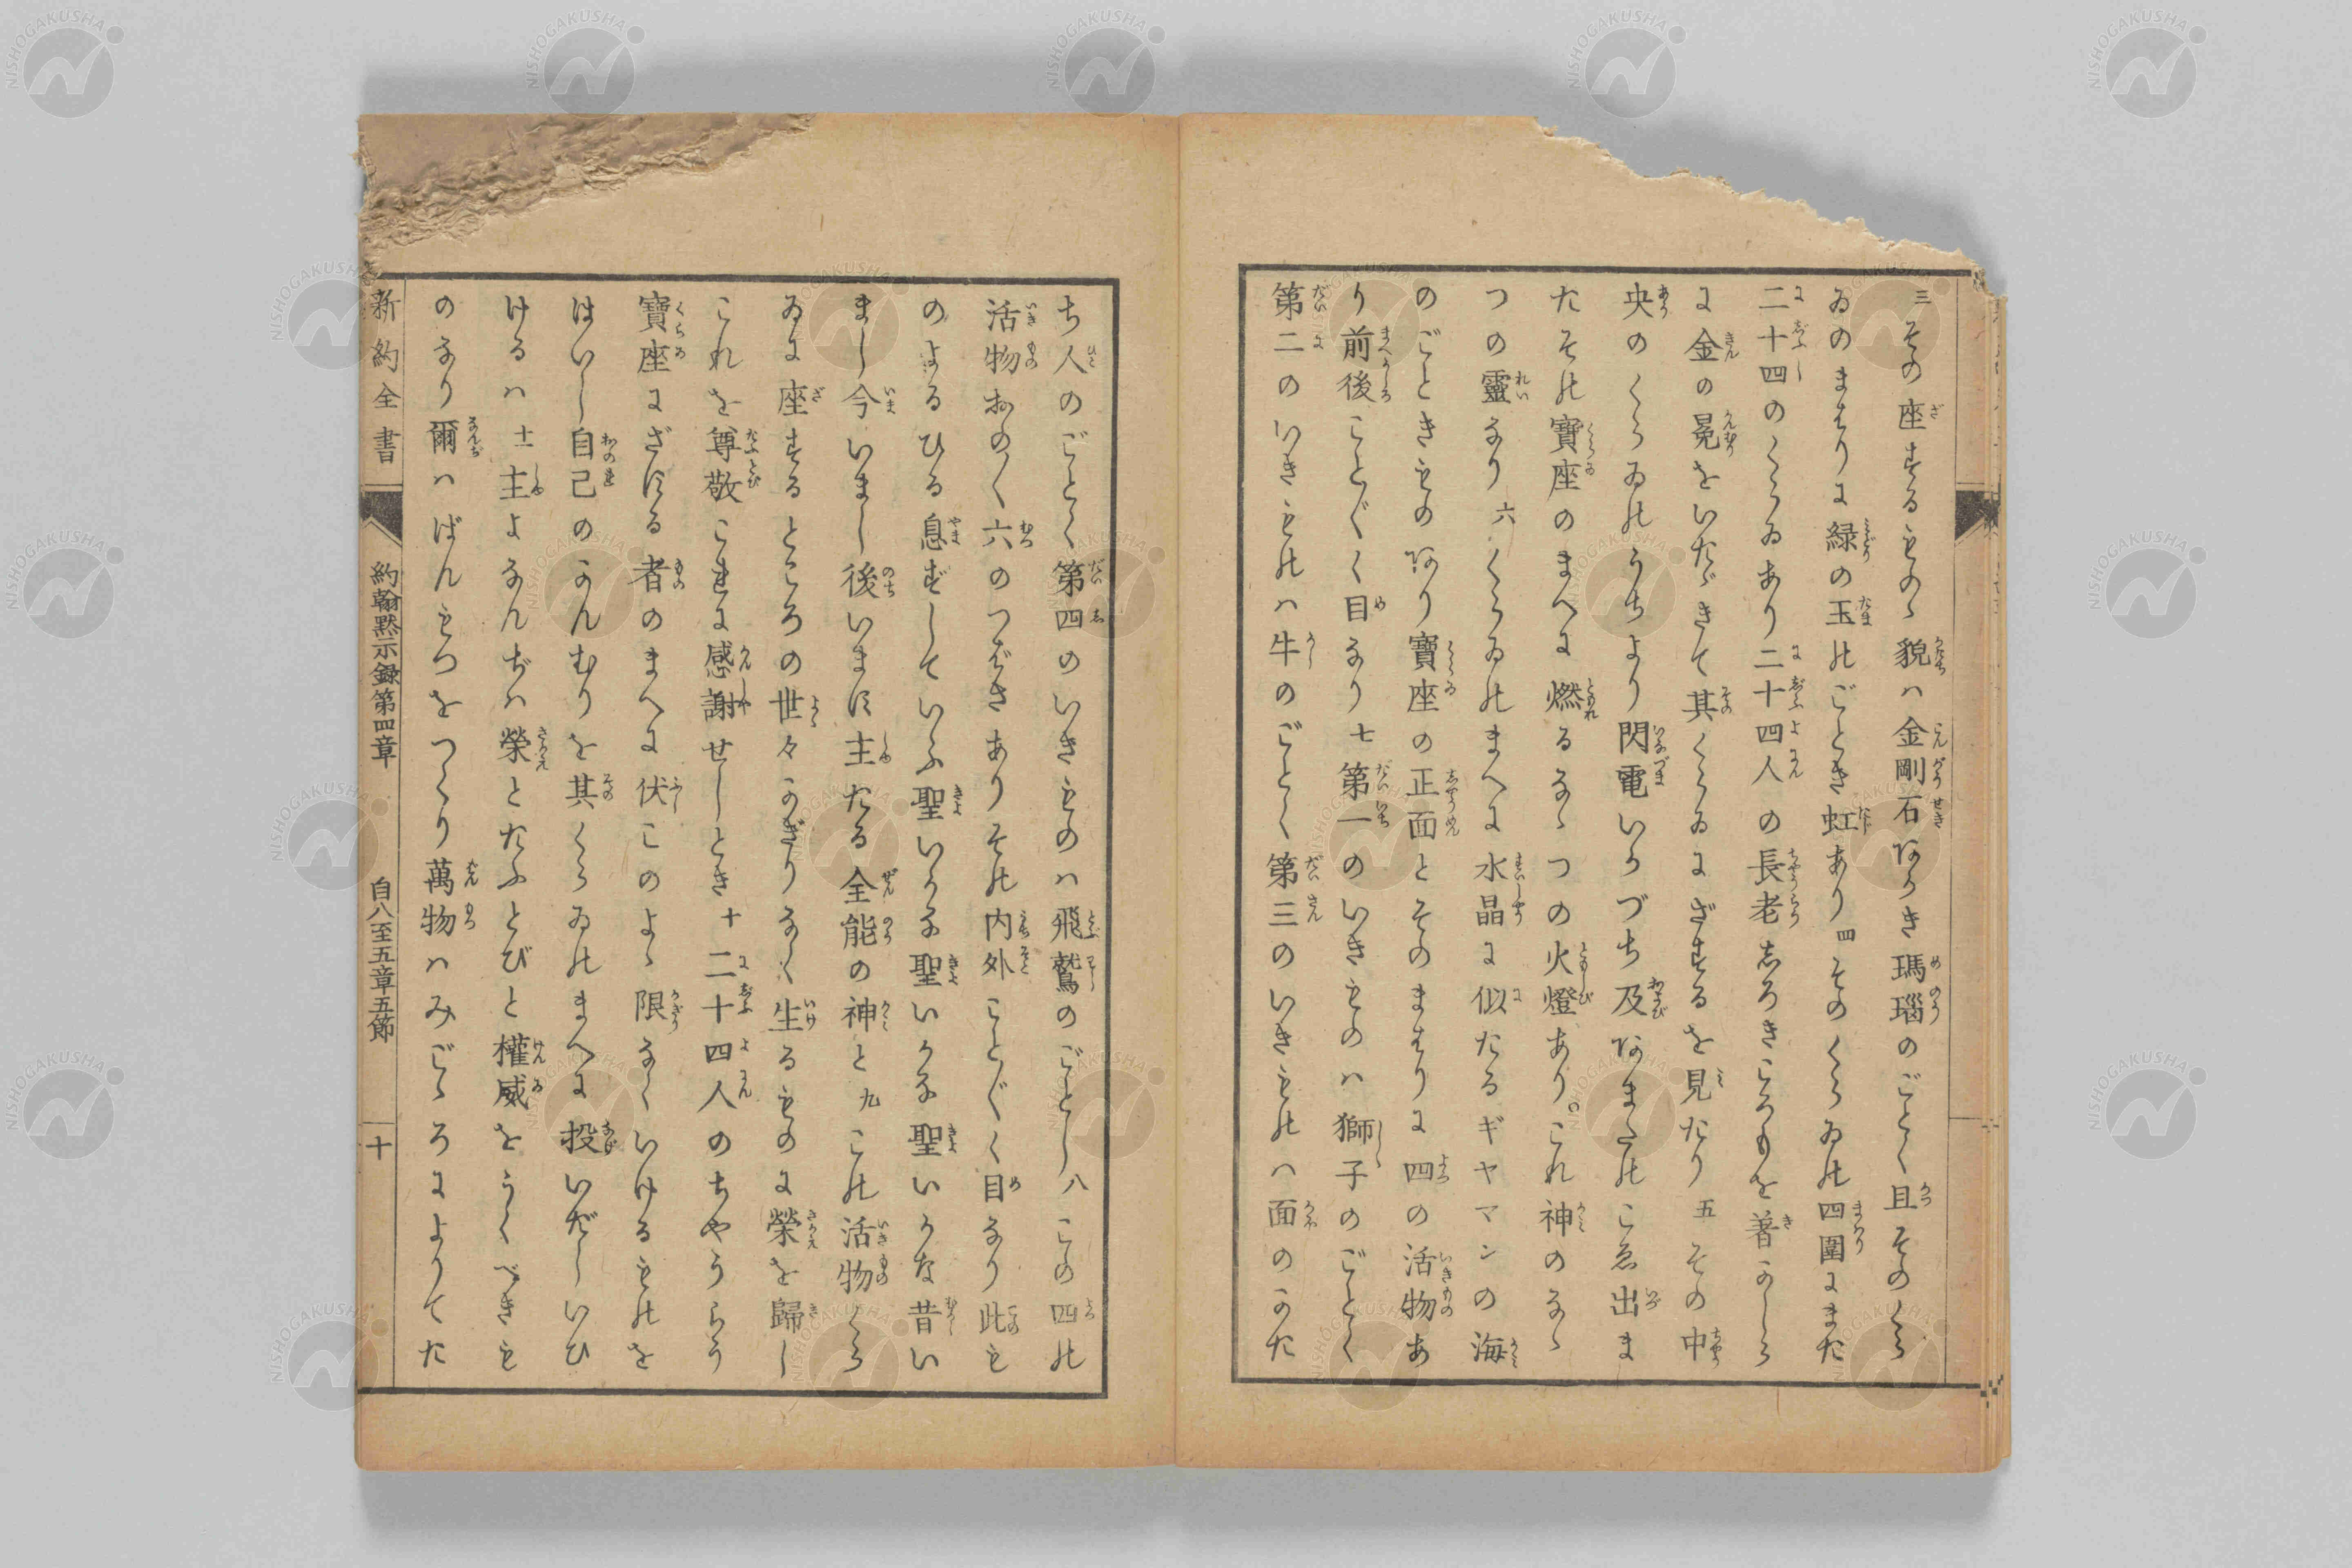 三その座するものゝ貌ハ金剛石アかき瑪瑙のごとく且そのくら
ゐのまはりに緑の玉のごとき虹あり四そのくらゐの四圍にまた
二十四のくらゐあり二十四人の長老しろきころもを著かしら
に金の冕をいたゞきて其くらゐにざするを見たり五その中
央のくらゐのうちより閃電いかづち及アまたのこゑ出ま
たその寳座のまへに燃るなゝつの火燈あり。これ神のなゝ
つの靈なり六くらゐのまへに水晶に似たるギヤマンの海
のごときものアり寳座の正面とそのまはりに四の活物あ
り前後ことごとく目なり七第一のいきものハ獅子のごとく
第二のいきものハ牛のごとく第三のいきものハ面のかた
ち人のごとく第四のいきものハ飛鷲のごとし八この四の
活物おの〱六のつばさありその内外ことごとく目なり此も
のよるひる息ずしていふ聖いかな聖いかな聖いかな昔い
まし今いまし後います主たる全能の神と九この活物くら
ゐに座するところの世々かぎりなく生るものに榮を歸し
これを尊敬これに感謝せしとき十二十四人のちやうらう
寳座にざする者のまへに伏このよゝ限なくいけるものを
はいし自己のかんむりを其くらゐのまへに投いだしいひ
けるハ十一主よなんぢハ榮とたふとびと權威をうくべきも
のなり爾ハばんもつをつくり萬物ハみごゝろによりてた
新約全書
約翰黙示録第四章
自八至五章五節
十